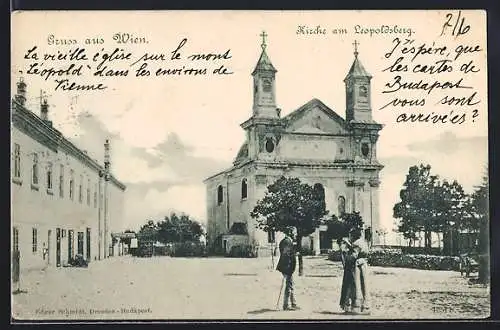 Gruss aus Wien.
Kirche am Leopoldsberg.
2/6
La vieille église sur le mont
Léopold dans les environs de
Vienne
J'espère, que
les cartes de
Budapest
vous sont
arrivées?
Edgar Schmidt, Dresden-Budapest.